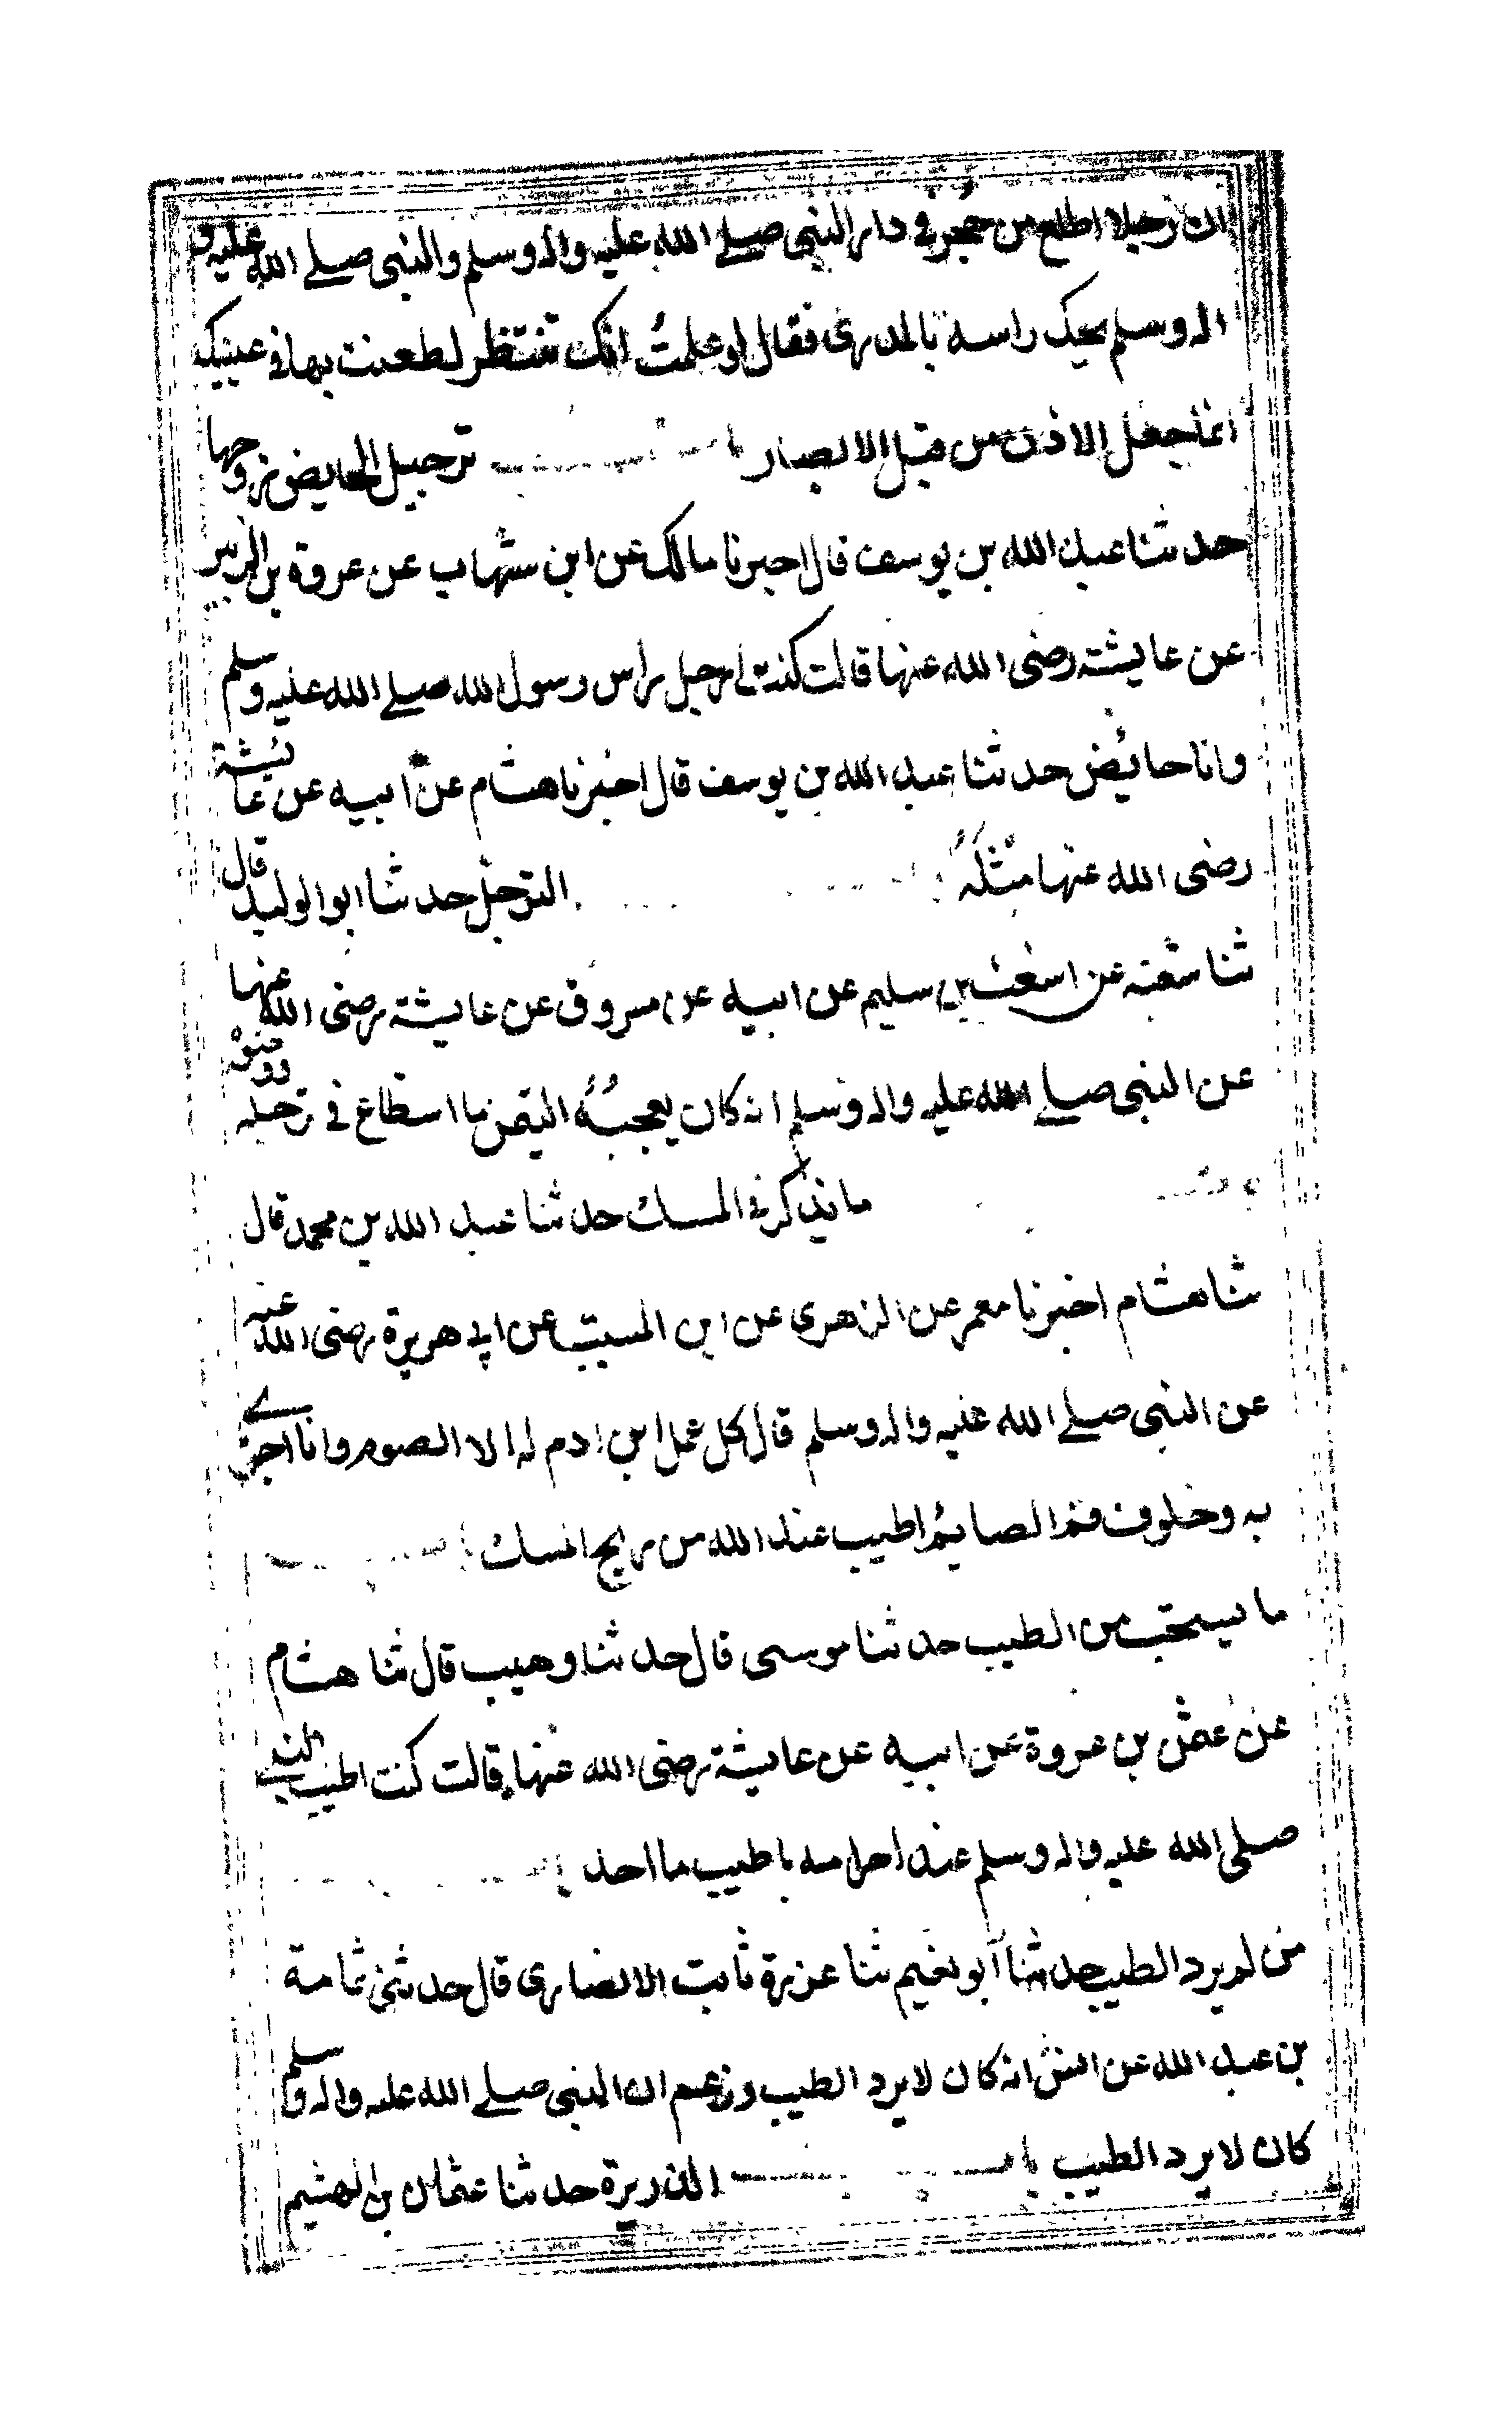 ان رجلا اطلع من حجر في دار النبي صلے الله عليه واله وسلم والنبي صلے الله عليه و
اله وسلم يحك راسه بالمدرى فقال لو علمتُ انك تنتظر لطعنت بها في عينيك
انما جعل الاذن من قبل الابصار باب ترجيل الحايض زوجها
حدثنا عبد الله بن يوسف قال اخبرنا مالك عن ابن شهاب عن عروة بن الزبير
عن عايشة رضى الله عنها قالت كنت ارجل راس رسول الله صلے الله عليه وسلم
وانا حايُض حدثنا عبد الله بن يوسف قال اخبرنا هشام عن ابيه عن عائشة
رضى الله عنها مثلَهُ الترجل حدثنا ابو الوليد قال
ثنا شعبه عن اشعث بن سليم عن ابيه عن مسروق عن عايشة رضى الله عنها
عن النبي صلے الله عليه واله وسلم انه كان يعجبُهُ التيمن ما استطاع في ترجله ووضوئه
ما يذكر في المسك حدثنا عبد الله بن محمد قال
ثنا هشام اخبرنا معمر عن الزهري عن ابن المسيب عن ابي هريرة رضى الله عنه
عن النبي صلے الله عليه واله وسلم قال كل عمل ابن ادم له الا الصوم وانا اجزے
به وخلوف فم الصايم اطيب عند الله من ريح المسك
ما يستحب من الطيب حدثنا موسى قال حدثنا وهيب قال ثنا هشام
عن عثمن بن عروة عن ابيه عن عايشة رضى الله عنها قالت كنت اطيب النبي
صلى الله عليه واله وسلم عند احرامه باطيب ما احد
من لم يرد الطيب حدثنا أبو نعيم ثنا عزرة ثابت الانصارى قال حدثنى ثمامة
بن عبد الله عن انس انه كان لا يرد الطيب وزعم ان النبي صلے الله عليه واله وسلم
كان لا يرد الطيب باب الذريرة حدثنا عثمان بن الهثيم